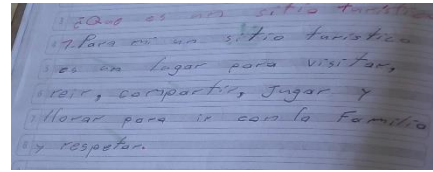 ¿Que es un sitio turistico
R/. Para mi un sitio turistico
es un lugar para visitar,
reir, compartir, Jugar y
llorar para ir con la Familia
y respetar.